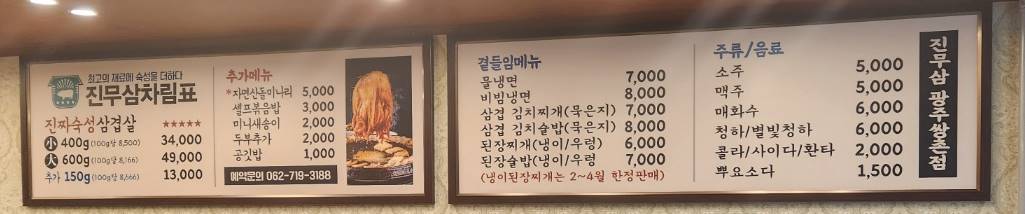 최고의 재료에 숙성을 더하다
진무삼차림표
진짜숙성삼겹살 ★★★★★
小 400g (100g당 8,500) 34,000
大 600g (100g당 8,166) 49,000
추가 150g (100g당 8,666) 13,000
추가메뉴
*자연산돌미나리 5,000
셀프볶음밥 3,000
미니새송이 2,000
두부추가 2,000
공깃밥 1,000
예약문의 062-719-3188
곁들임메뉴
물냉면 7,000
비빔냉면 8,000
삼겹 김치찌개(묵은지) 7,000
삼겹 김치술밥(묵은지) 8,000
된장찌개(냉이/우렁) 6,000
된장술밥(냉이/우렁 7,000
(냉이된장찌개는 2~4월 한정판매)
주류/음료
소주 5,000
맥주 5,000
매화수 6,000
청하/별빛청하 6,000
콜라/사이다/환타 2,000
뿌요소다 1,500
진무삼 광주쌍촌점